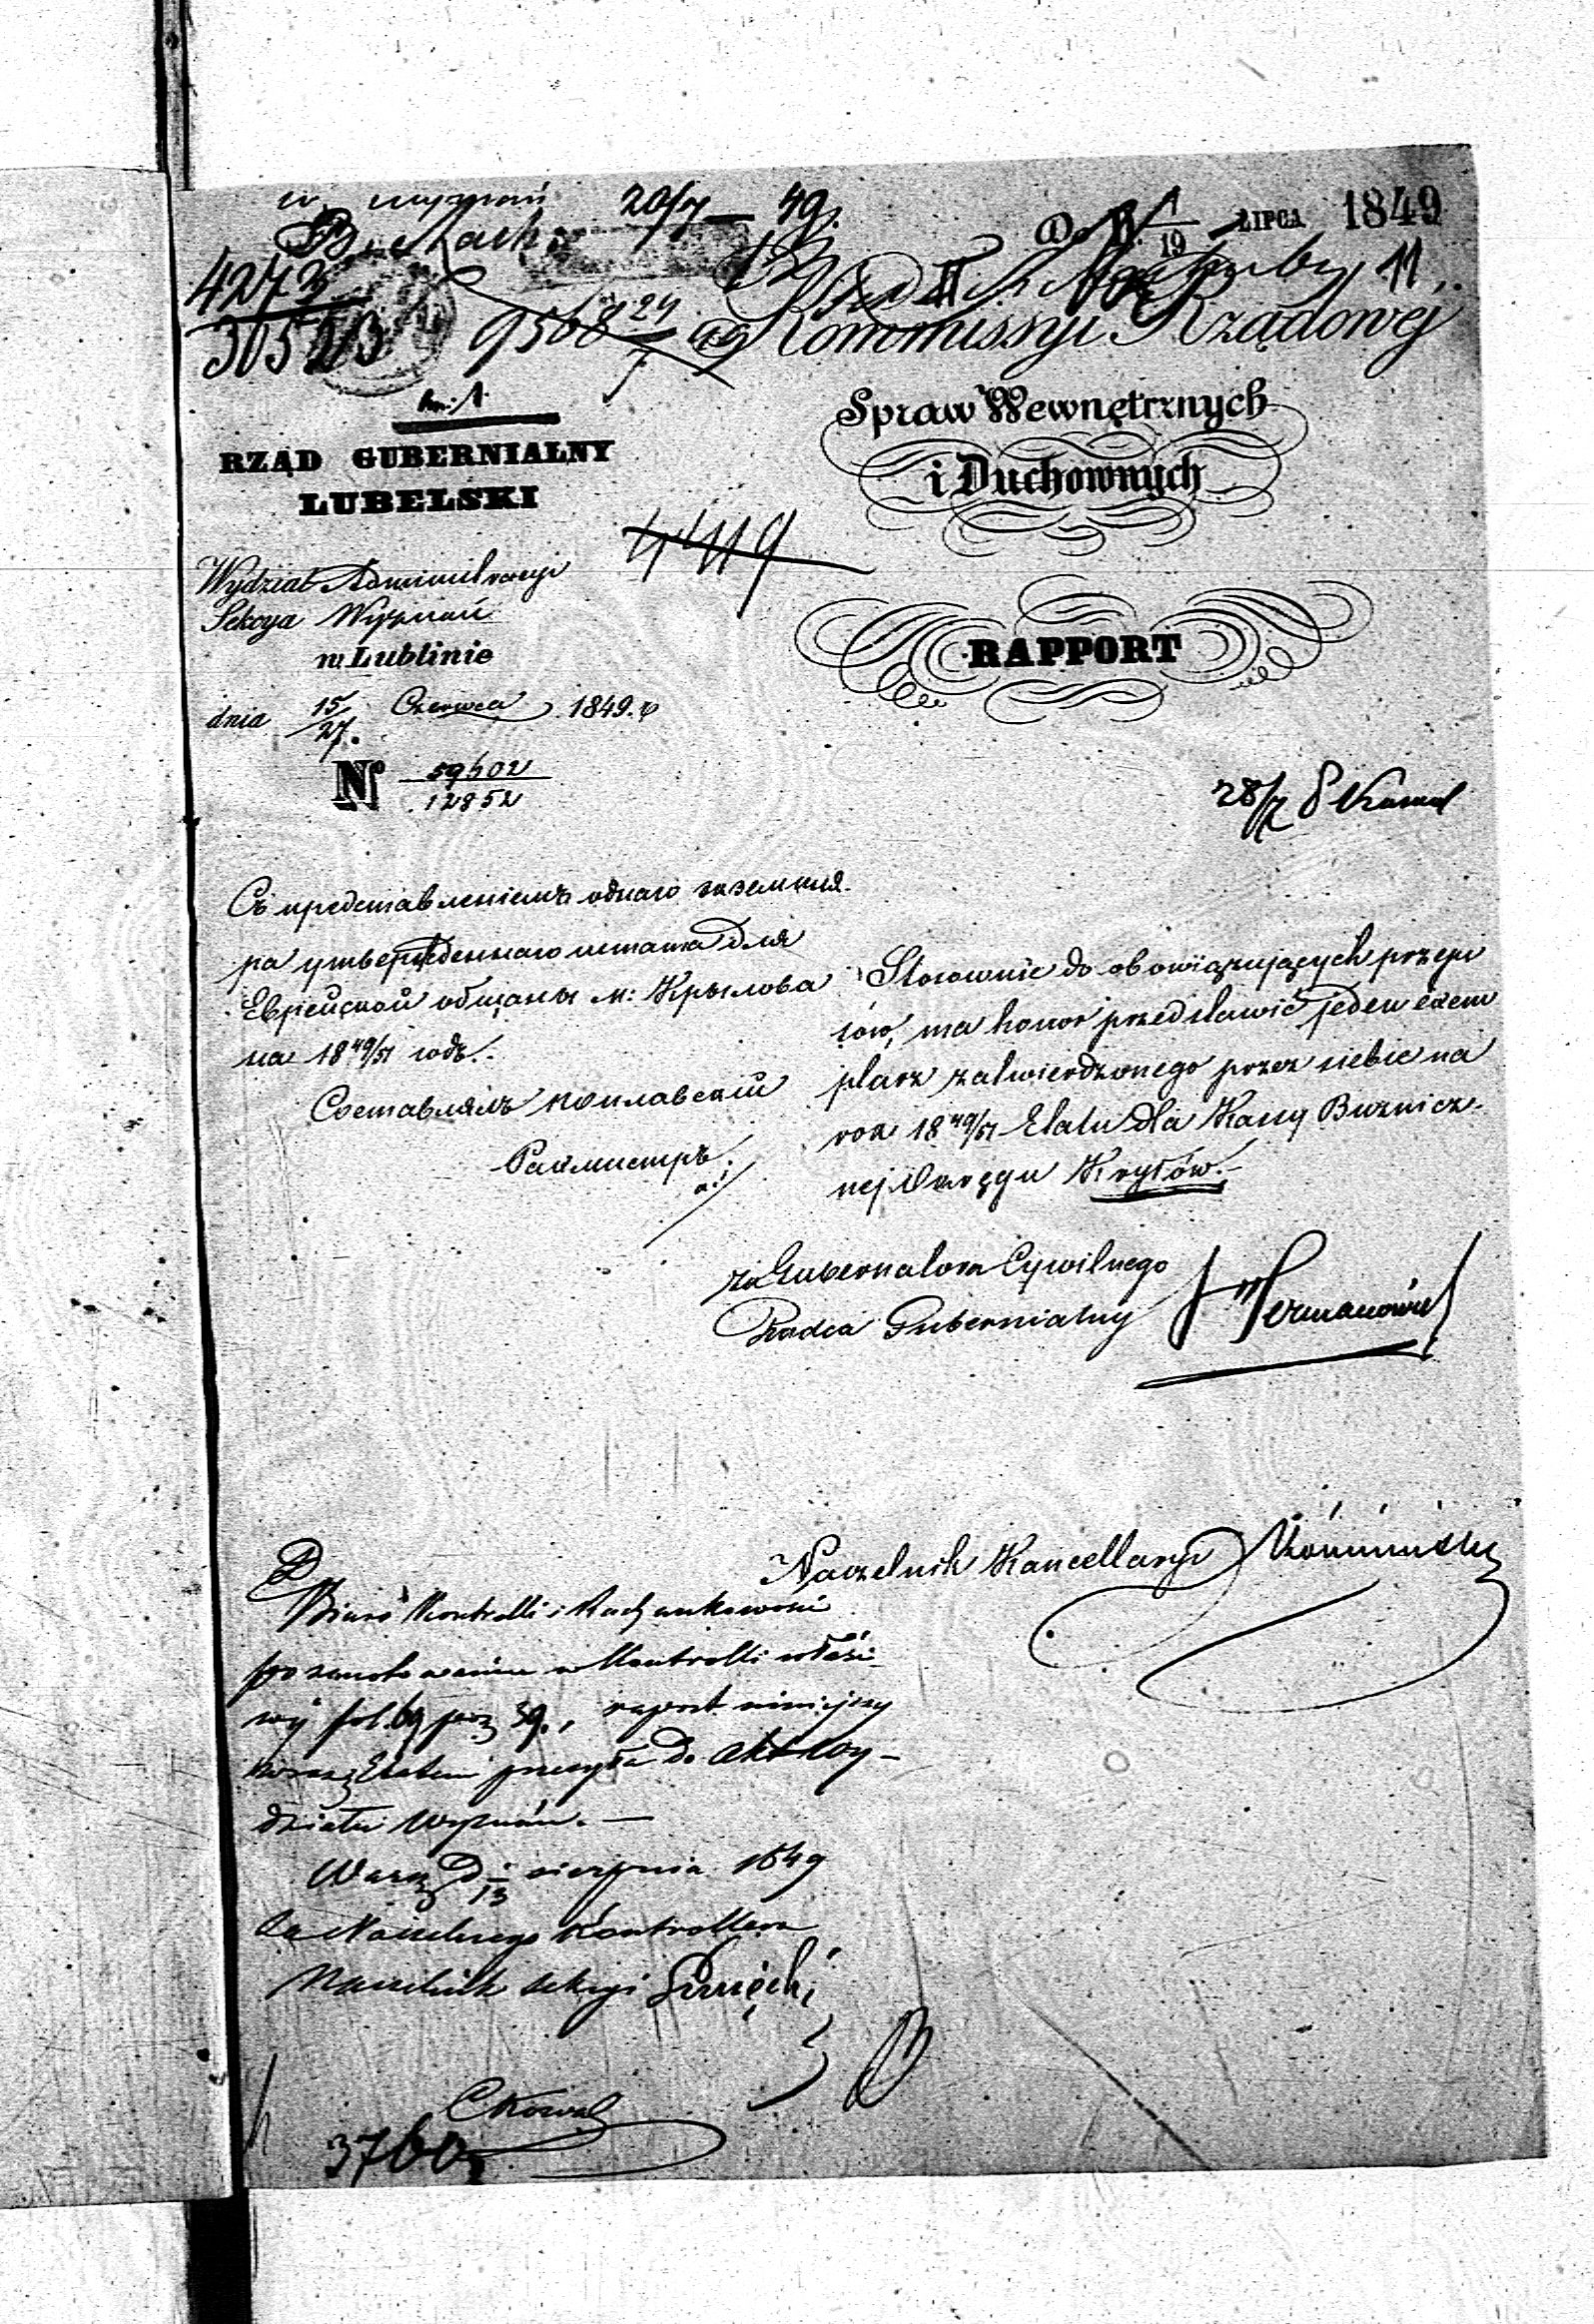 20/7 49.
7/19 LIPCA 1849
4273
30573
9568 24/7 49
Kommissyi Rządowej
Spraw Wewnętrznych
i Duchownych
RAPPORT
RZĄD GUBERNIALNY
LUBELSKI
4419
Wydział Administracyi
Sekcya Wyznań
w Lublinie
dnia 15/27. Czerwca 1849. r
No 59402/12852
28/7
Съ представленіемъ однаго экземпля
ра утвержденнаго штата для
Еврейской общины м: Крылова
на 1849/51 годъ.
Составлялъ
Стосownie do obowiązujących przepi
sów, ma honor przedstawić jeden exem
plarz zatwierdzonego przez siebie na
rok 1849/51 Etatu dla Kassy Bóżnicz-
nej Okręgu Kryłów.-
za Gubernatora Cywilnego
Radca Gubernialny Hermanowicz
Naczelnik Kancellaryi
Biuro Kontrolli i Rachunkowości
po zanotowaniu w Kontrolli właści
wéj fol. 69 poz 39., raport niniejszy
wraz z Etatem przesyła do Akt Wy-
działu Wyznań. —
Warsz. D 1/13 sierpnia 1849
Za Naczelnego Kontrollera
Naczelnik sekcyi
3760